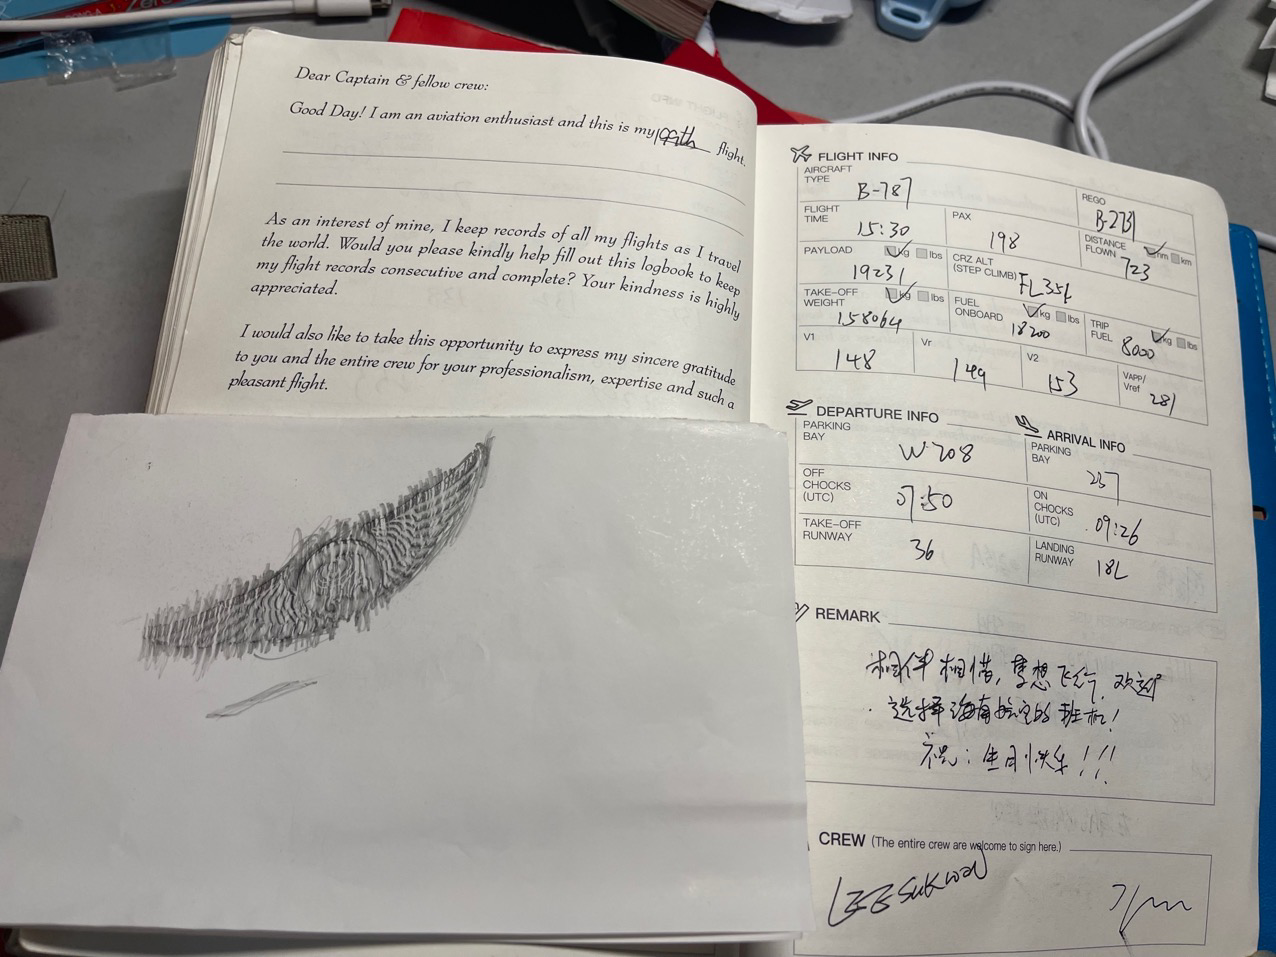 Dear Captain & fellow crew:
Good Day! I am an aviation enthusiast and this is my flight.
As an interest of mine, I keep records of all my flights as I travel
the world. Would you please kindly help fill out this logbook to keep
my flight records consecutive and complete? Your kindness is highly
appreciated.
I would also like to take this opportunity to express my sincere gratitude
to you and the entire crew for your professionalism, expertise and such a
pleasant flight.
FLIGHT INFO
AIRCRAFT TYPE B-787
REGO B-2731
FLIGHT TIME 15:30
PAX 198
DISTANCE FLOWN nm km 723
PAYLOAD kg lbs 19231
CRZ ALT (STEP CLIMB)
TAKE-OFF WEIGHT kg lbs 158064
FUEL ONBOARD kg lbs 18200
TRIP FUEL kg lbs 8000
V1 148
Vr 149
V2 153
VAPP/Vref 281
DEPARTURE INFO
PARKING BAY W208
OFF CHOCKS (UTC) 07:50
TAKE-OFF RUNWAY 36
ARRIVAL INFO
PARKING BAY 237
ON CHOCKS (UTC) 09:26
LANDING RUNWAY 18L
REMARK
相伴相惜,梦想飞行,欢迎
选择海南航空的班机!
祝:生日快乐!!!
CREW (The entire crew are welcome to sign here.)